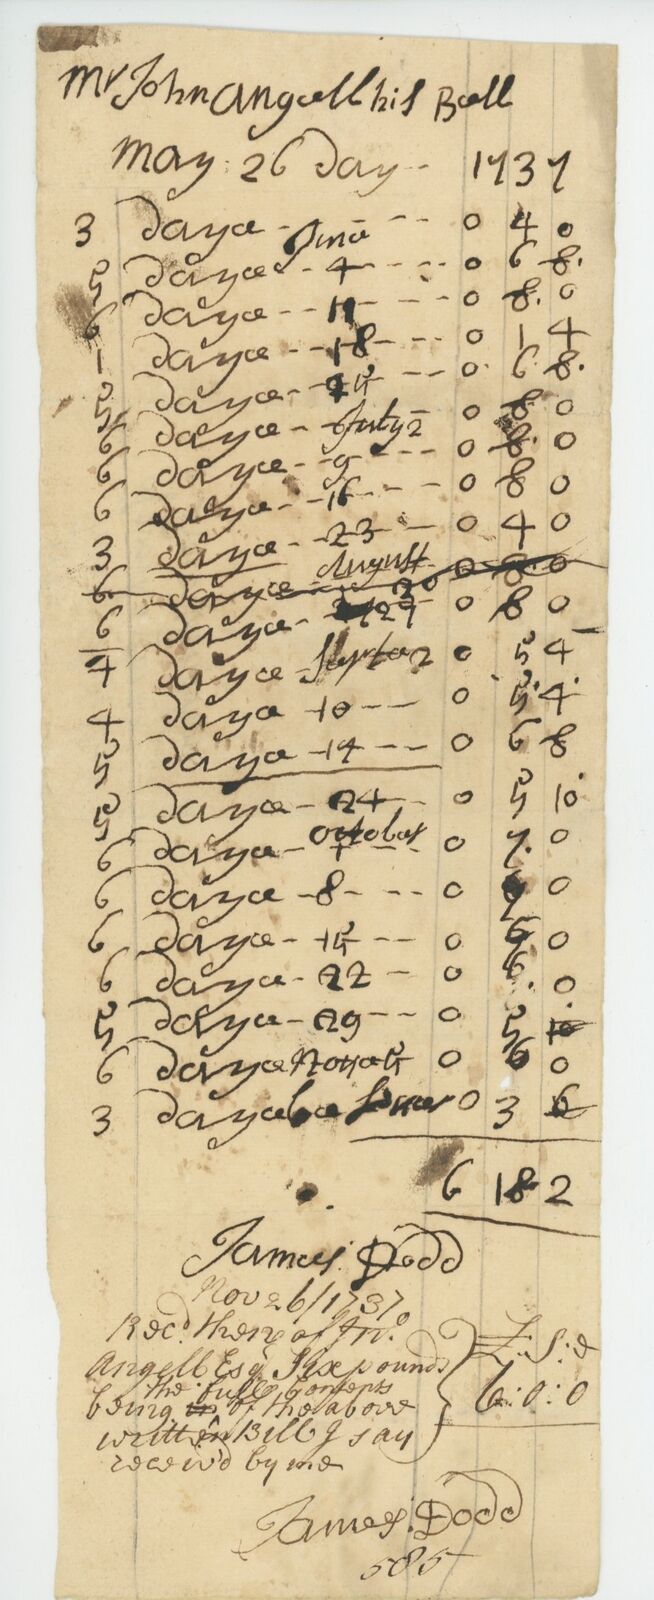 Mr John Angell his Bell
May: 26 Day - 1737
3 Daye - - - 0 4 0
June
5 Daye - 4 - - - 0 6 8
6 Daye - - 11 - - - 0 8 0
1 Daye - - 18 - - 0 1 4
5 Daye - - 25 - - 0 6 8
6 Daye - July 2 0 8 0
6 Daye - - 9 - - 0 8 0
6 Daye - - 16 - - 0 8 0
3 Daye - - 23 - 0 4 0
6 Daye August 20 0 8 0
6 Daye - 27 - 0 8 0
4 Daye - Septe 2 0 5 4
4 Daye 10 - - 0 5 4
5 Daye - 14 - - - 0 6 8
5 Daye - 24 - 0 5 10
october
6 Daye - 1 - - - 0 7 0
6 Daye - 8 - - - 0 7 0
6 Daye - 15 - - 0 6 0
6 Daye - 22 - 0 6 0
5 Daye - 29 - 0 5 10
6 Daye 5 0 6 0
3 Daye 0 3 6
6 18 2
James Dodd
Nov 26/1737
Recd then of Jno.
Angell Esqr Six pounds
the full contents
being in of the above
written Bill I say
receivd by me
£ : S : d
6 : 0 : 0
James Dodd
585